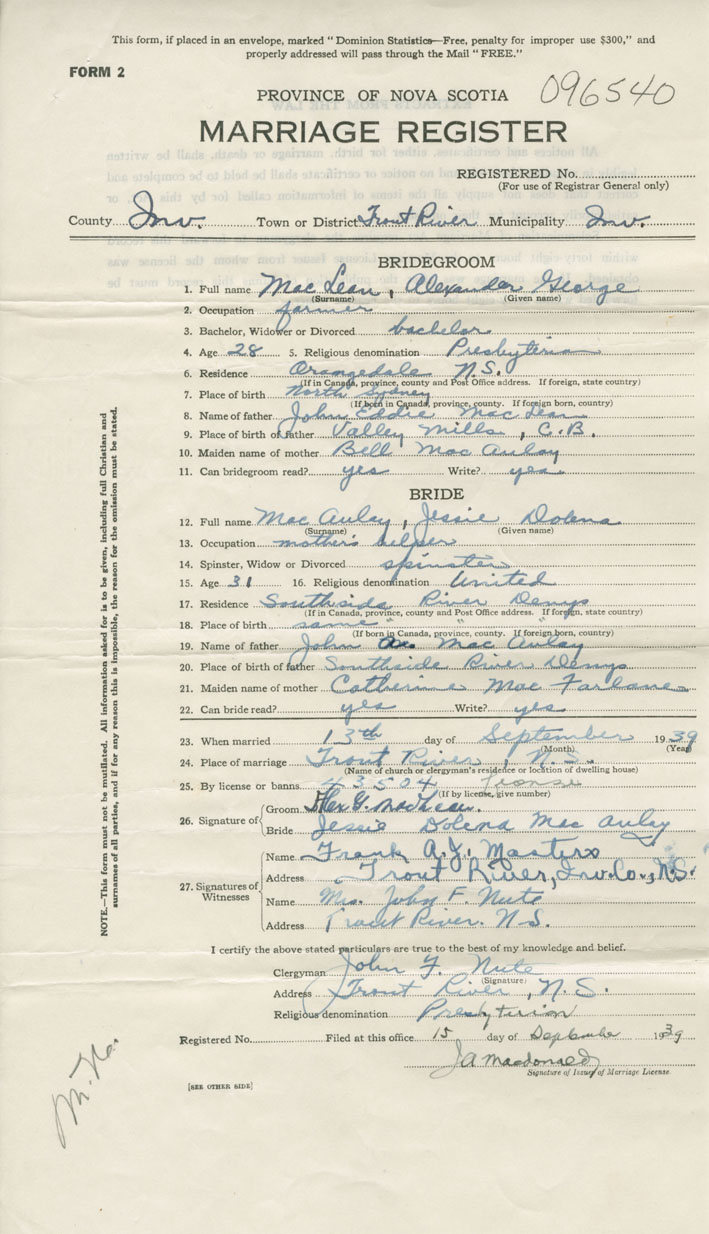 This form, if placed in an envelope, marked "Dominion Statistics—Free, penalty for improper use $300," and
properly addressed will pass through the Mail "FREE."
FORM 2
PROVINCE OF NOVA SCOTIA 096540
MARRIAGE REGISTER
REGISTERED No.
(For use of Registrar General only)
County Inv. Town or District Trout River Municipality Inv.
BRIDEGROOM
1. Full name Mac Lean, Alexander George
(Surname) (Given name)
2. Occupation farmer
3. Bachelor, Widower or Divorced bachelor
4. Age 28 5. Religious denomination Presbyterian
6. Residence Orangedale N.S.
(If in Canada, province, county and Post Office address. If foreign, state country)
7. Place of birth North Sydney
(If born in Canada, province, county. If foreign born, country)
8. Name of father John Eddie Mac Lean
9. Place of birth of father Valley Mills, C.B.
10. Maiden name of mother Bell Mac Aulay
11. Can bridegroom read? yes Write? yes
BRIDE
12. Full name Mac Aulay, Jessie Dolena
(Surname) (Given name)
13. Occupation mother's helper
14. Spinster, Widow or Divorced spinster
15. Age 31 16. Religious denomination United
17. Residence Southside River Denys
(If in Canada, province, county and Post Office address. If foreign, state country)
18. Place of birth same " "
(If born in Canada, province, county. If foreign born, country)
19. Name of father John Mac Aulay
20. Place of birth of father Southside River Denys
21. Maiden name of mother Catherine Mac Farlane
22. Can bride read? yes Write? yes
23. When married 13th day of September 1939
(Month) (Year)
24. Place of marriage Trout River, N.S.
(Name of church or clergyman's residence or location of dwelling house)
25. By license or banns 43504 license
(If by license, give number)
26. Signature of Groom Alex G. MacLean.
Bride Jessie Dolena Mac Aulay
27. Signatures of Witnesses Name Frank A.J. Masters
Address Trout River, Inv. Co., N.S.
Name Mrs. John F. Nute
Address Trout River. N.S.
I certify the above stated particulars are true to the best of my knowledge and belief.
Clergyman John F. Nute
(Signature)
Address Trout River, N.S.
Religious denomination Presbyterian
Registered No. Filed at this office 15 day of September 1939
J A Macdonald
Signature of Issuer of Marriage License
[SEE OTHER SIDE]
NOTE.—This form must not be mutilated. All information asked for is to be given, including full Christian and
surnames of all parties, and if for any reason this is impossible, the reason for the omission must be stated.